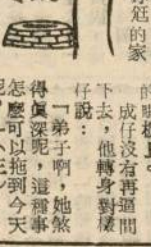 的家
的
成仔沒有再逼問
下去，他轉身對樣
仔說：
「弟子啊，她煞
得眞深呢，這種事
怎麼可以拖到今天
呢